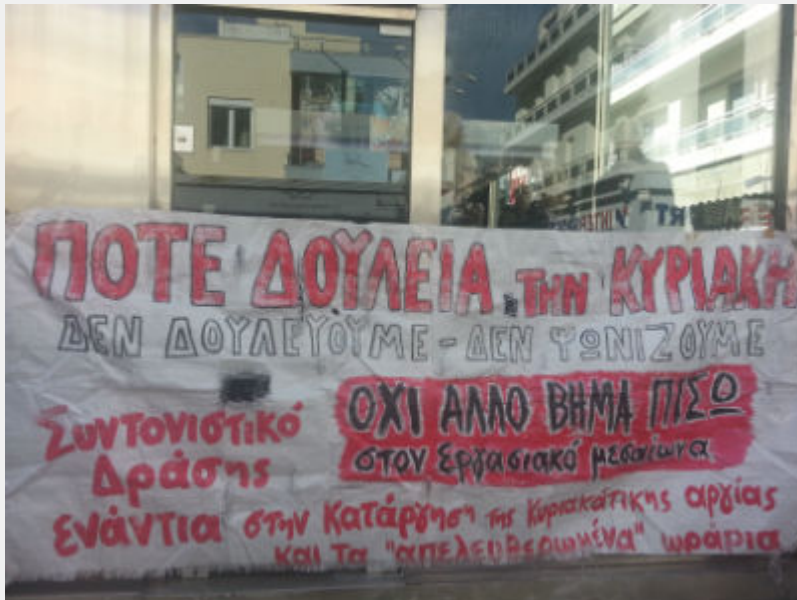 ΠΟΤΕ ΔΟΥΛΕΙΑ ΤΗΝ ΚΥΡΙΑΚΗ
ΔΕΝ ΔΟΥΛΕΥΟΥΜΕ - ΔΕΝ ΨΩΝΙΖΟΥΜΕ
ΟΧΙ ΑΛΛΟ ΒΗΜΑ ΠΙΣΩ
στον εργασιακό μεσαίωνα
Συντονιστικό
Δράσης
ενάντια στην κατάργηση της Κυριακάτικης αργίας
και τα "απελευθερωμένα" ωράρια